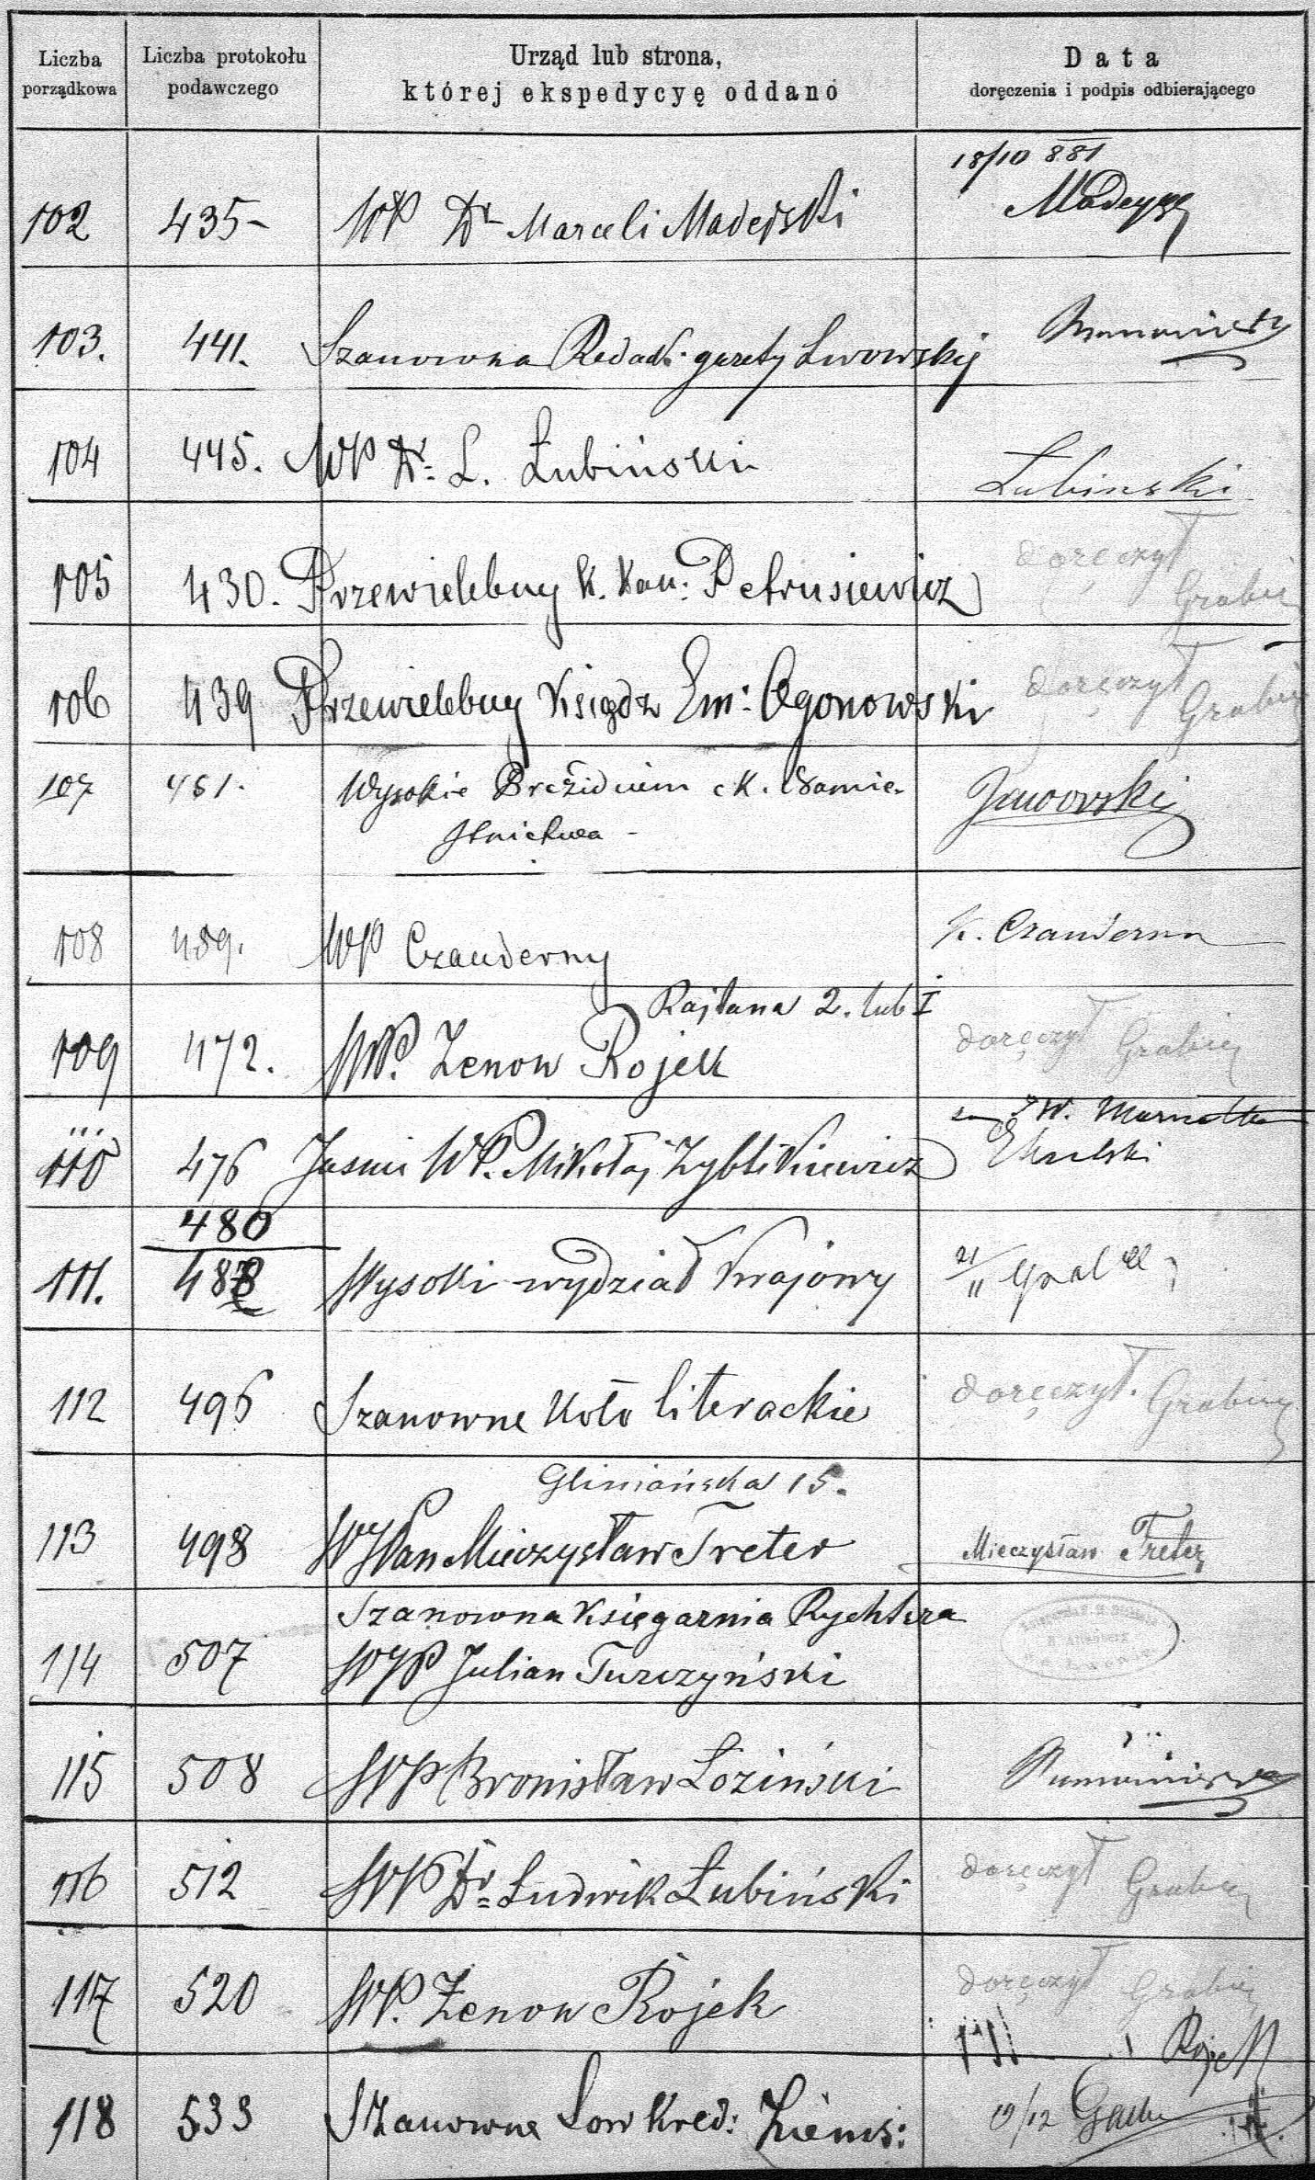 Liczba porządkowa
Liczba protokołu podawczego
Urząd lub strona, której ekspedycyę oddano
Data doręczenia i podpis odbierającego
18/10 881
102 435 WP Dr Marceli Madejski Madeyski
103. 441. Szanowna Redak. gazety Lwowskij
104 445. WP Dr. L. Łubiński Łubinski
105 430. Przewielebny K. Kan: Petrusiewicz doręczył Grabiec
106 439 Przewielebny Ksiądz Em: Ogonowski doręczył Grabiec
107 451. Wysokie Prezidium ck. Namie-
stnictwa Jaworski
108 459. WP Czauderny K. Czauderna
Rajtana 2. lub I
109 472. WP. Zenon Rojek doręczył Grabiec
110 476 Jaśnie WP. Mikołaj Zyblikiewicz
480
111. 488 Wysoki wydział Krajowy 21/11
112 496 Szanowne Koło literackie doręczył. Grabiec
Gliniańska 15.
113 498 WPan Mieczysław Treter Mieczysław Treter
Szanowna Księgarnia Rychtera
114 507 WP Julian Turczyński
115 508 WP Bronisław Łoziński
116 512 WP Dr. Ludwik Łubiński doręczył Grabiec
117 520 WP. Zenon Rojek doręczył Grabiec
Rojek
118 533 Szanowne Tow Kred: Ziems: 19/12